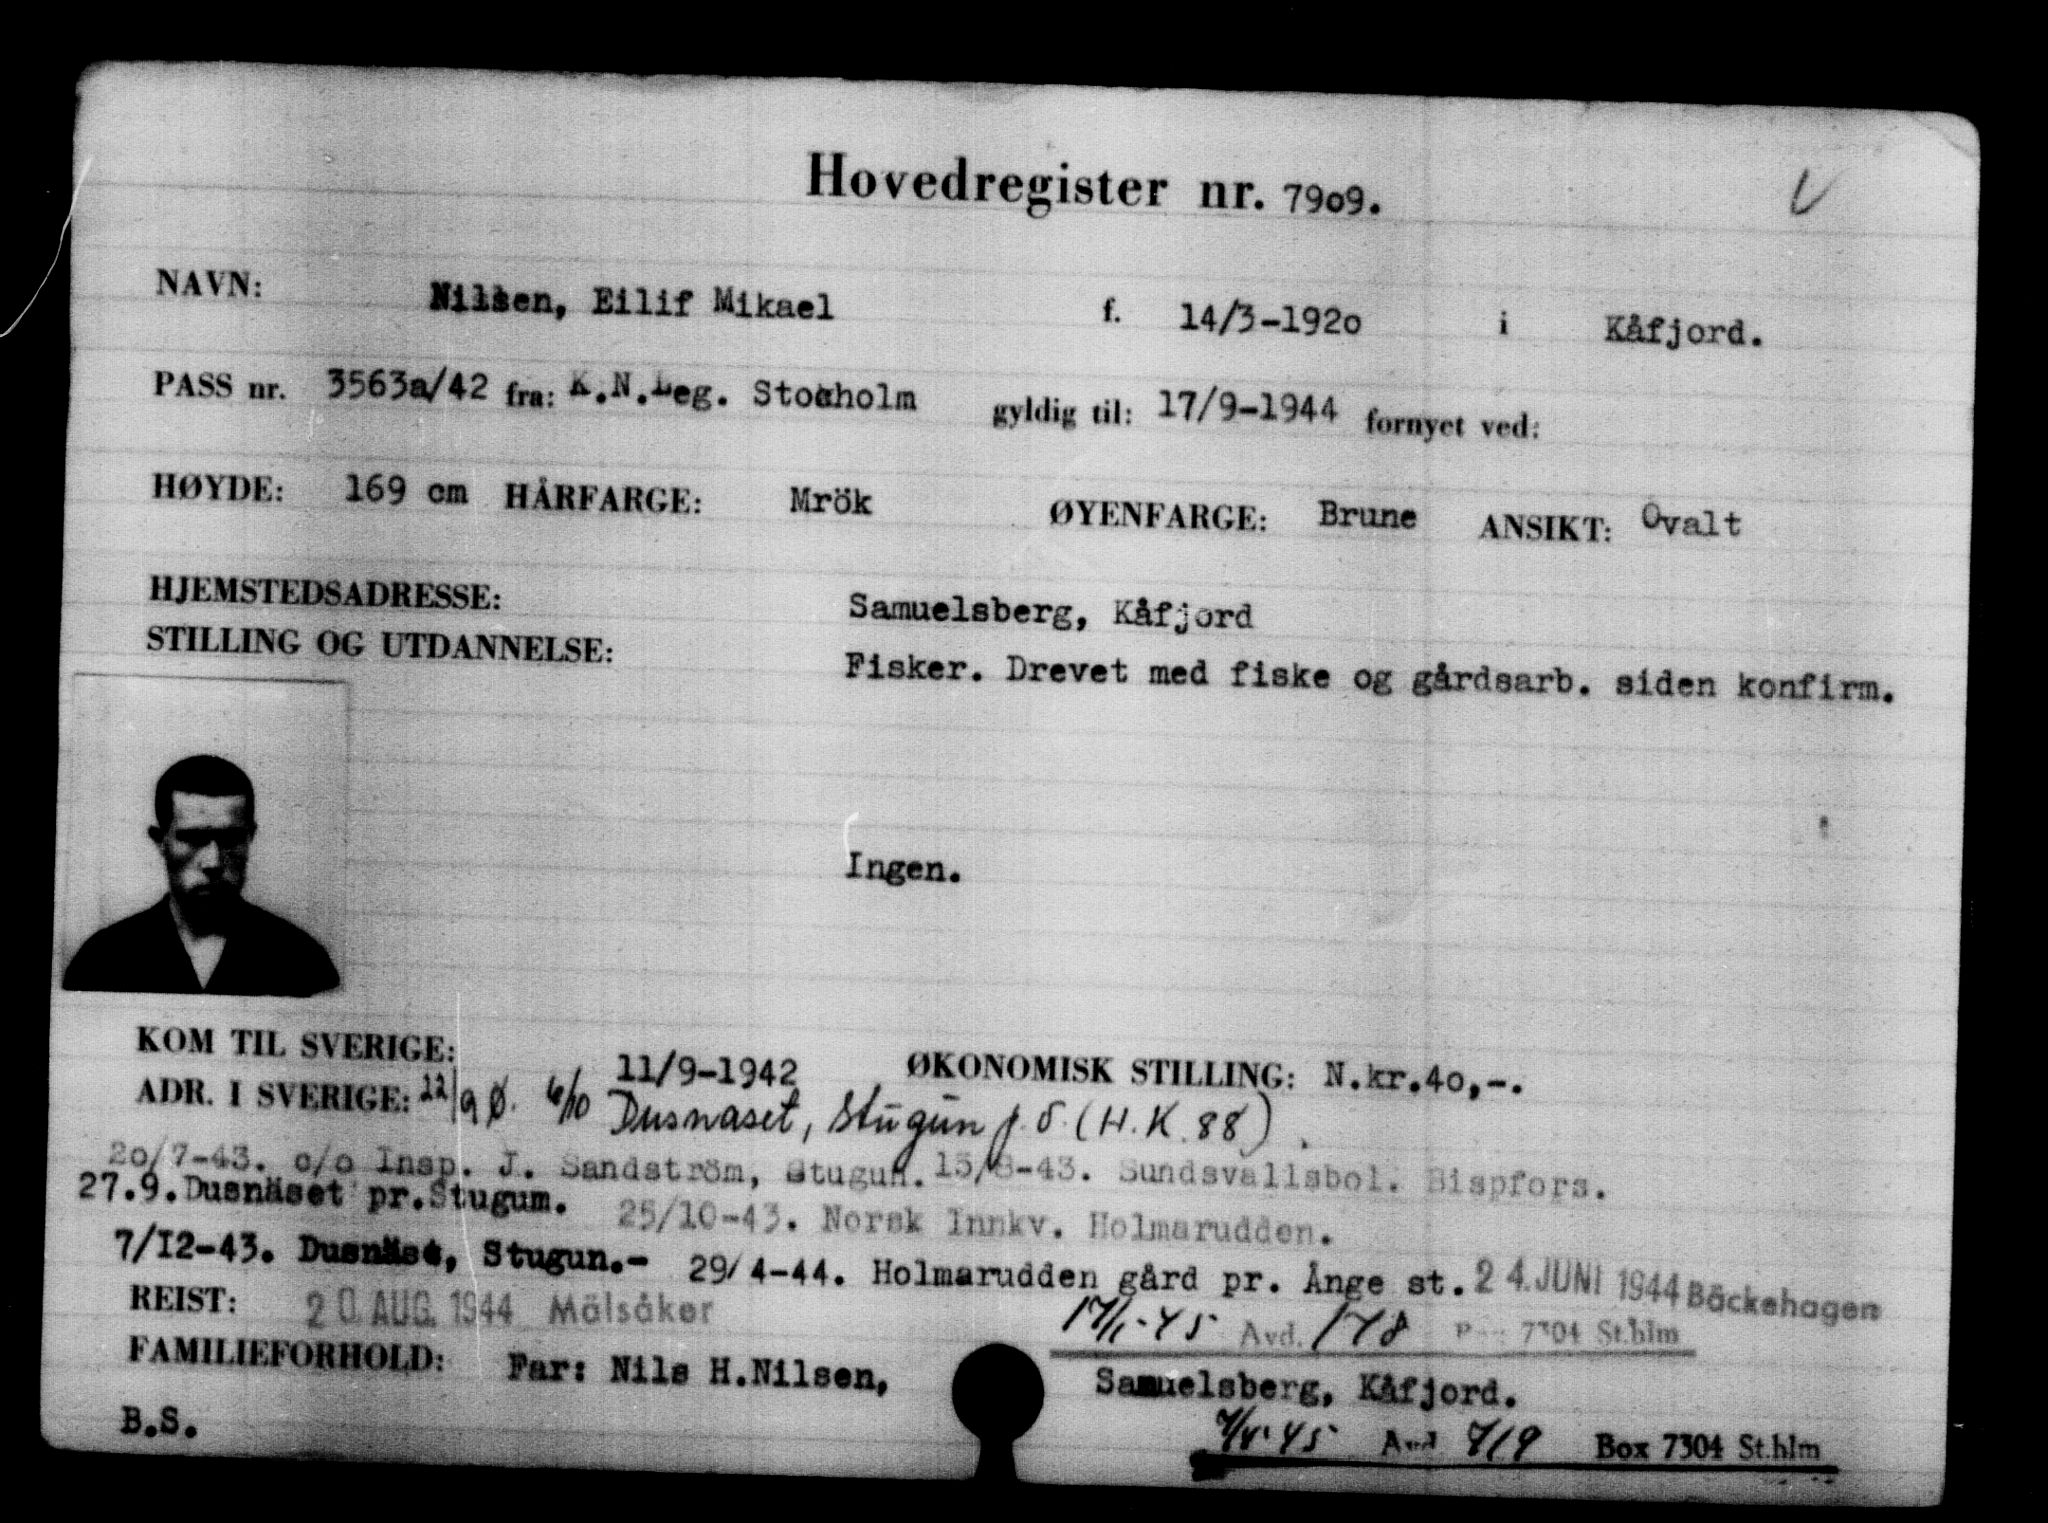 Hovedregister nr. 7909.
NAVN: Nilsen, Eilif Mikael f. 14/3-1920 i Kåfjord.
PASS nr. 3563a/42 fra: K.N.Leg. Stockholm gyldig til: 17/9-1944 fornyet ved:
HØYDE: 169 cm HÅRFARGE: Mrök ØYENFARGE: Brune ANSIKT: Ovalt
HJEMSTEDSADRESSE: Samuelsberg, Kåfjord
STILLING OG UTDANNELSE: Fisker. Drevet med fiske og gårdsarb. siden konfirm.
Ingen.
KOM TIL SVERIGE: 11/9-1942 ØKONOMISK STILLING: N.kr.40,-.
ADR. I SVERIGE: 22/9 Ø. 6/10 Dusnaset, Stugun p.å. (H.K. 88).
20/7-43. c/o Insp. J. Sandström, Stugun. 13/8-43. Sundsvallsbol. Bispfors.
27.9. Dusnäset pr. Stugum. 25/10-43. Norsk Innkv. Holmarudden.
7/12-43. Dusnäset, Stugun.- 29/4-44. Holmarudden gård pr. Ånge st. 24. JUNI 1944 Bäckehagen
REIST: 20. AUG. 1944 Mälsåker 17/1-45 Avd. 178 Box 7304 St.hlm
FAMILIEFORHOLD: Far: Nils H.Nilsen, Samuelsberg, Kåfjord.
B.S. Avd 719 Box 7304 St.hlm